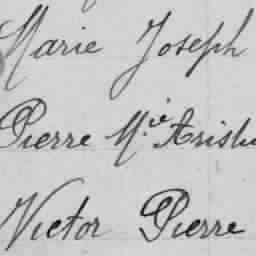 Marie Joseph
Pierre M.ie
Victor Pierre